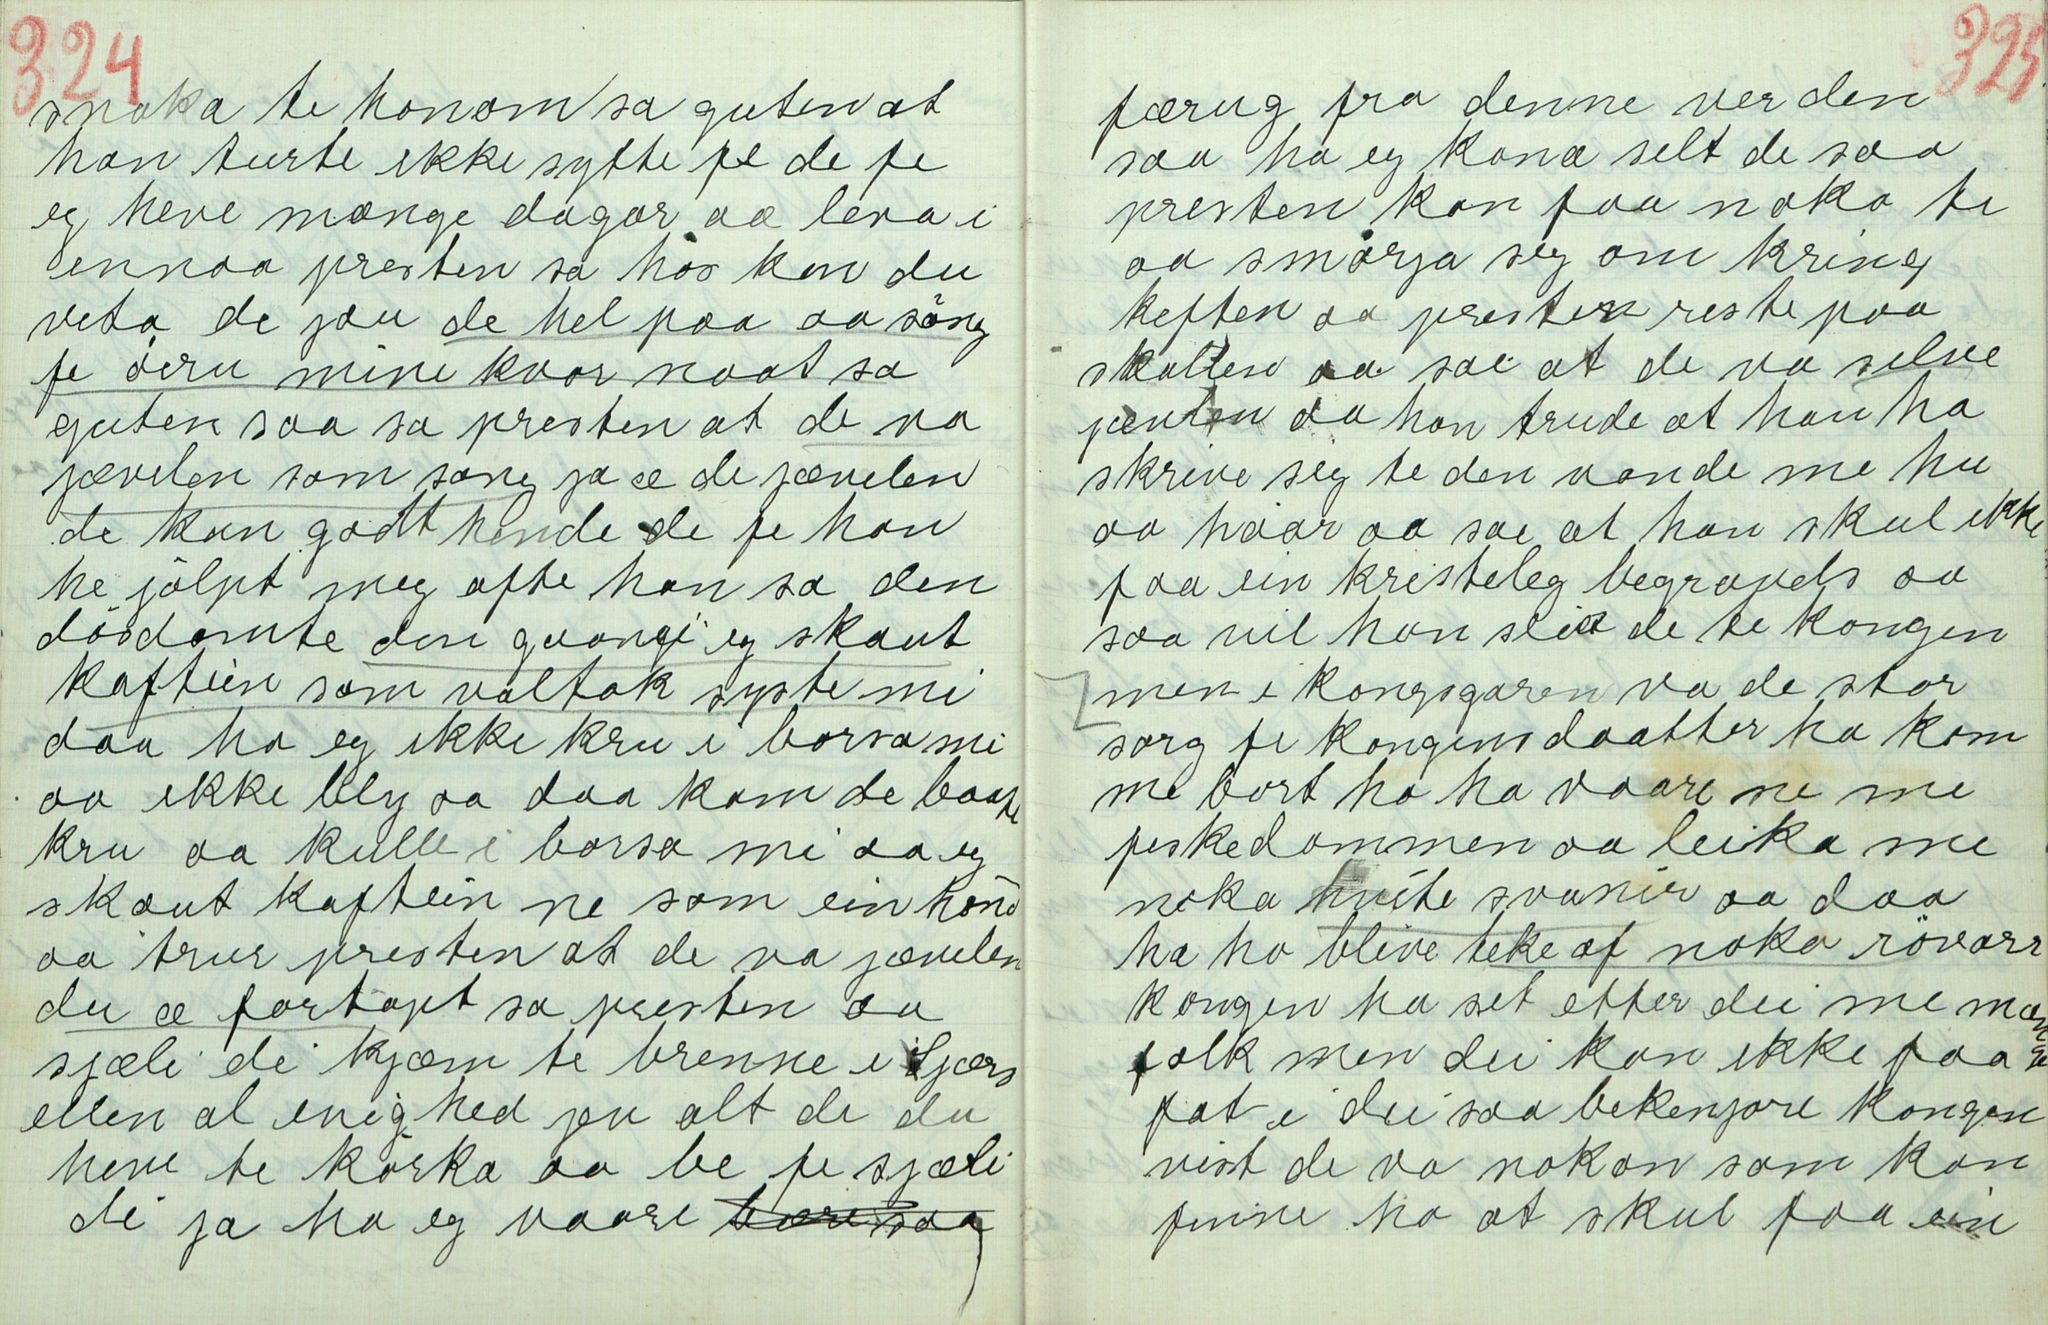 324
snaka te honom sa guten at
han turte ikke sytte fe de fe
eg heve mange dagar aa leva i
ennaa presten sa hos kan du
veta de jau de hel paa aa söng
fe öeru mine kvar naat sa
guten saa sa presten at de va
jævelen som song ja æ de jævelen
de kan godt hende de fe han
he jölpt meg ofte han sa den
dösdömte den gaangi eg skaut
kaftein som valtok syste mi
daa ha eg ikke kru i borsa mi
aa ikke bly sa daa kom de baade
kru aa kulle i borsa mi aa eg
skaut kaftein ne som ein hönd
aa trur presten at de va jævelen
du æ fortapt sa presten aa
sjæli di kjæm te brenne i
ellen al enighed jau alt de du
heve te körka aa be fe sjæli
di ja ha eg vaare
325
færug fra denne verden
saa ha eg kona selt de saa
presten kan faa noko te
aa smörja seg om kring
keften aa presten reste paa
skallen aa sae at de va selve
jævelen aa han trude at han ha
skrive seg te den vonde me hu
aa haar aa sae at han skul ikke
faa ein kristeleg begravels aa
saa vil han seia de te kongen
men i kongsgaren va de stor
sorg fe kongens daatter ha kom
me bort ho ha vaare ne me
feskedammen aa leika me
noka hvite svaner aa daa
ha ho blive teke af noka rövarr
kongen ha set etter dei me mange
folk men dei kan ikke faa
fat i dei saa bekenjore kongen
vist de va nokon som kan
finne ho at skul faa ein